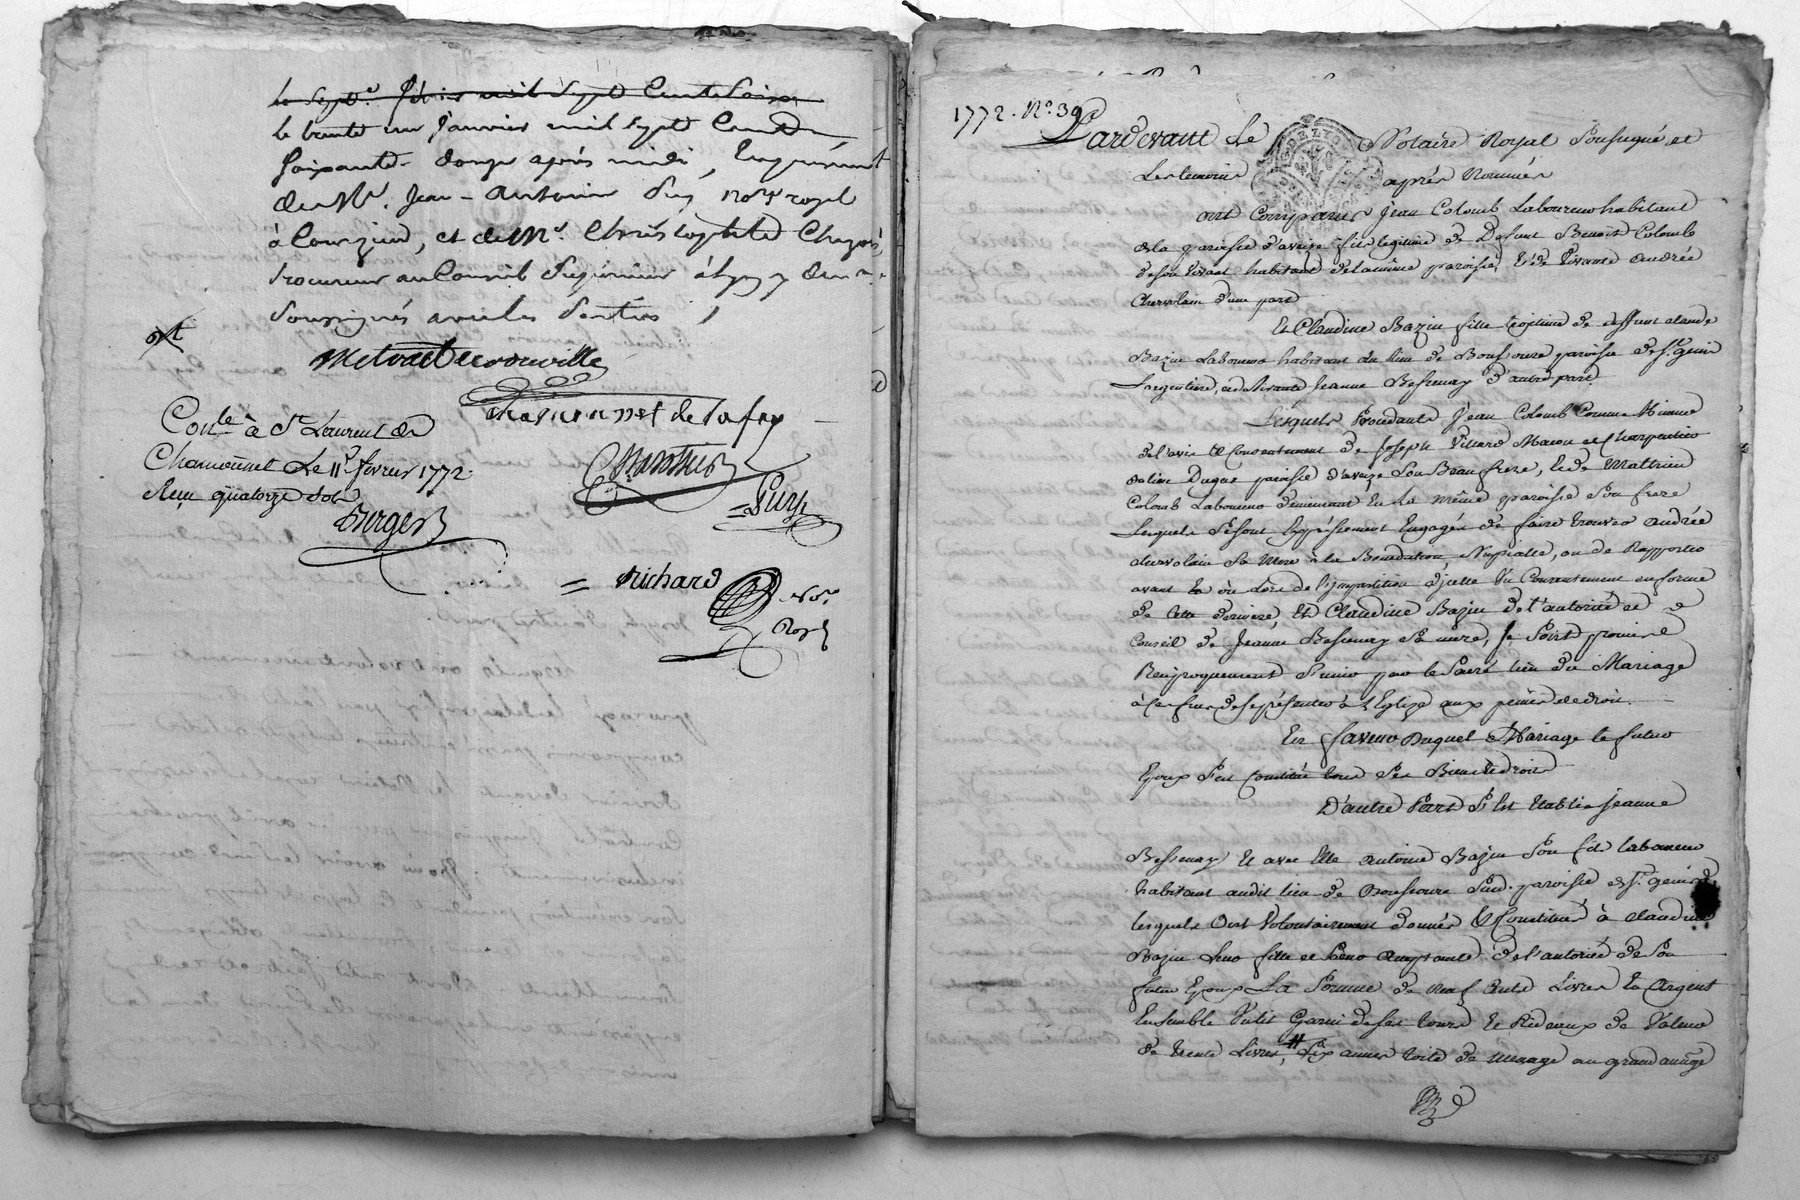 le trente un janvier mil sept Cent
soixante-douze après midi, En présence
de Mr. Jean-Antoine Puy no.re royal
à Courzieu, et de Mr. Christophle
procureur au Conseil Supérieur à Lyon
soussignés avec les parties
Chamonnet de la fay
Con.lé à St Laurent de
Chamousset Le 11e fevrier 1772.
Reçu quatorze sols
Berger
Puy
Richard
No.re
Royal
1772. No. 39
Pardevant Le Notaire Royal Soussigné et
Les temoins après Nommés
ont Comparus Jean Colomb Laboureur habitant
de la paroisse d'aveize fils legitime de Defunt Benoit Colomb
de son vivant habitant de la même paroisse, & de vivante andrée
Chervolain d'une part
Et Claudine Bazin fille legitime de deffunt claude
Bazin Laboureur habitant du lieu de paroisse de St. genis
Largentiere, et de vivante Jeanne Bessenay d'autre part
Lesquels procedants Jean Colomb Comme Mineur
de l'avis & Consentement de Joseph Villard Macon et Charpentier
paroisse d'aveize Son Beau frere, & de Mathieu
Colomb Laboureur demeurant En la même paroisse Son frere
Lesquels Se sont Expressement Engagés de faire trouver andrée
chervolain Sa Mere à la Benediction Nuptialle, ou de Rapporter
avant la ou Lors de l'impartition d'jcelle Un Consentement en forme
de Cette derniere, Et Claudine Bazin de l'autorité et
Conseil de Jeanne Bessenay Sa mere, Se Sont promis
Reciproquement S'unir par le Sacré lien du Mariage
à ces fins de se présenter à l'Eglize aux peines de droit.
En faveur Duquel Mariage le futur
Epoux S'est Constitué tous Ses Biens & droits
D'autre Part S'est Etablie jeanne
Bessenay Et avec Elle antoine Bazin Son fils laboureur
habitant audit lieu de paroisse de St. genis
lesquels Ont Volontairement donnés & Constitués à claudine
Bazin Leur fille et Sœur acceptante de l'autorité de Son
futur Epoux La Somme de Neuf Cents Livres En Argent
Ensemble Un lit Garni de ses tours & Rideaux de Valeur
de trente Livres, Six aunes toile de menage au grand aunage